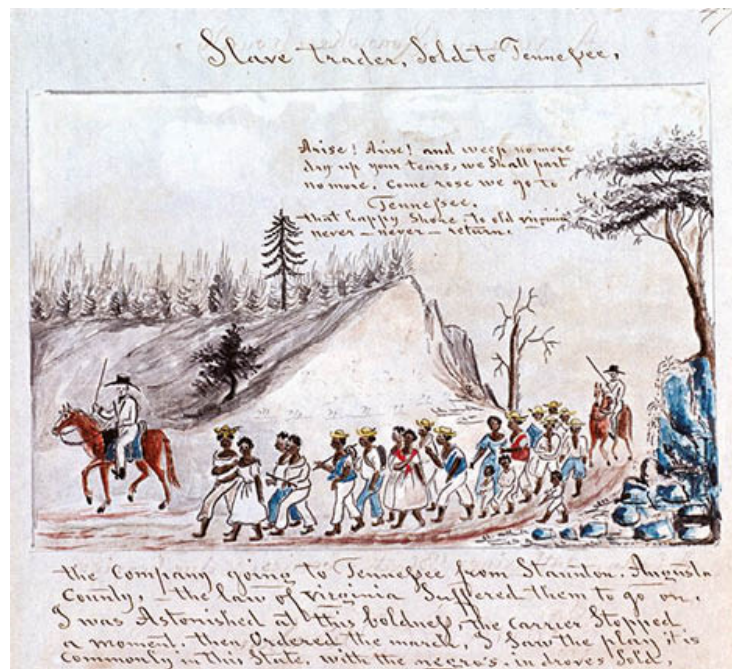 Slave trader, Sold to Tennessee,
Arise! Arise! and weep no more
dry up your tears, we Shall part
no more, Come rose we go to
Tennessee,
that happy Shore, to old virginia
never — never — return.
the Company going to Tennessee from Staunton, Augusta
County, — the law of virginia Suffered them to go on.
I was Astonished at this boldness, the carrier Stopped
a moment, then Ordered the march, I Saw the play it is
Commonly in this State, with the negro's in droves